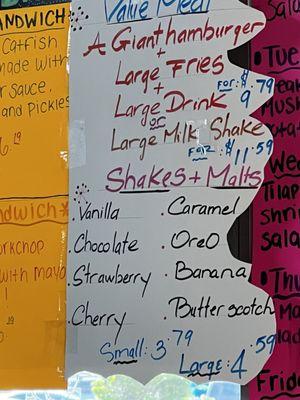 NDWICH
Catfish
made with
r sauce,
and pickles
ndwich*
with mayo
!
Value Meal
A Giant hamburger
+
Large Fries
+
Large Drink
For: $9.79
or
Large Milk Shake
For $11.59
Shakes + Malts
.Vanilla
.Chocolate
.Strawberry
.Cherry
.Caramel
.Oreo
.Banana
.Butterscotch
Small: 3.79
Large: 4.59
Sala
Tue
Wed
Tilap
shri
sala
Thu
Ma
sala
Frida